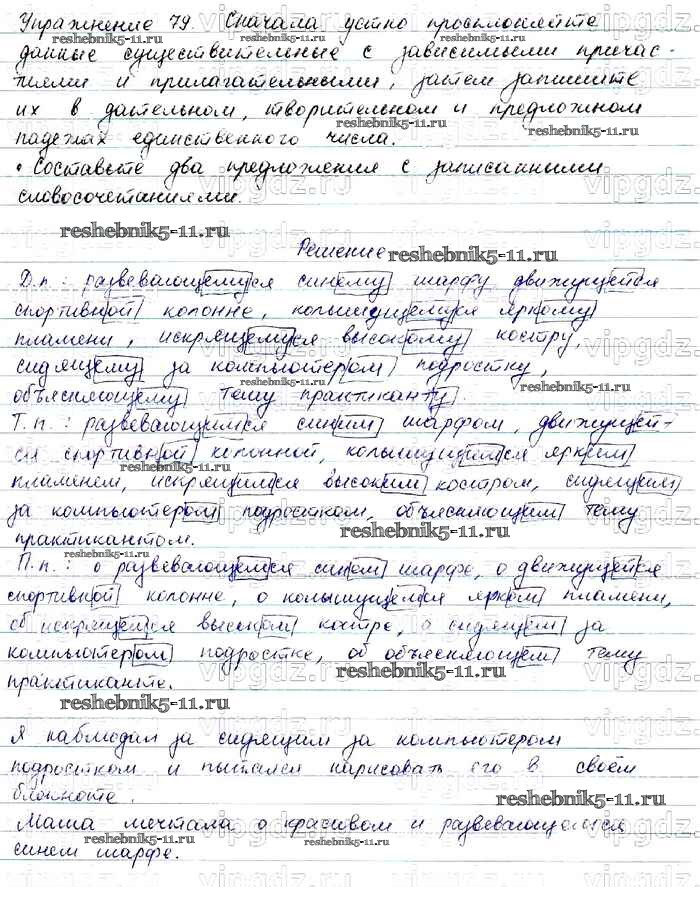 Упражнение 79. Сначала устно просклоняйте
данные существительные с зависимыми причас-
тиями и прилагательными, затем запишите
их в дательном, творительном и предложном
падежах единственного числа.
• Составьте два предложения с записанными
словосочетаниями.
Решение
Д.п.: развевающемуся синему шарфу, движущейся
спортивной колонне, колышущемуся яркому
пламени, искрящемуся высокому костру,
сидящему за компьютером подростку,
объясняющему тему практиканту.
Т.п.: развевающимся синим шарфом, движущей-
ся спортивной колонной, колышущимся ярким
пламенем, искрящимся высоким костром, сидящим
за компьютером подростком, объясняющим тему
практикантом.
П.п.: о развевающемся синем шарфе, о движущейся
спортивной колонне, о колышущемся ярком пламени,
об искрящемся высоком костре, о сидящем за
компьютером подростке, об объясняющем тему
практиканте.
Я наблюдал за сидящим за компьютером
подростком и пытался нарисовать его в своём
блокноте.
Маша мечтала о красивом и развевающемся
синем шарфе.
reshebnik5-11.ru
vipgdz.ru